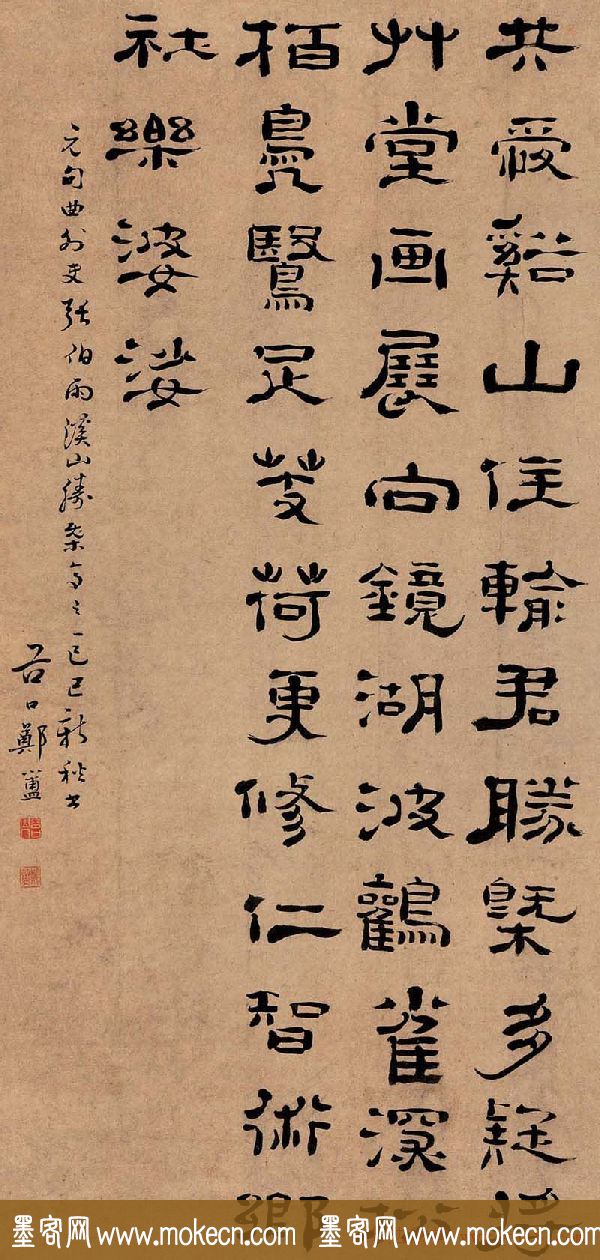 共愛谿山住輸君勝槩多疑
艸堂画展向鏡湖波鸛雀深
栢鳧鷖足芰荷更修仁智術鄉
社樂婆娑
元句曲外史張伯雨溪山勝槩之一己巳新秋書
谷口鄭簠
墨客网 www.mokecn.com 墨客网 www.mokecn.com